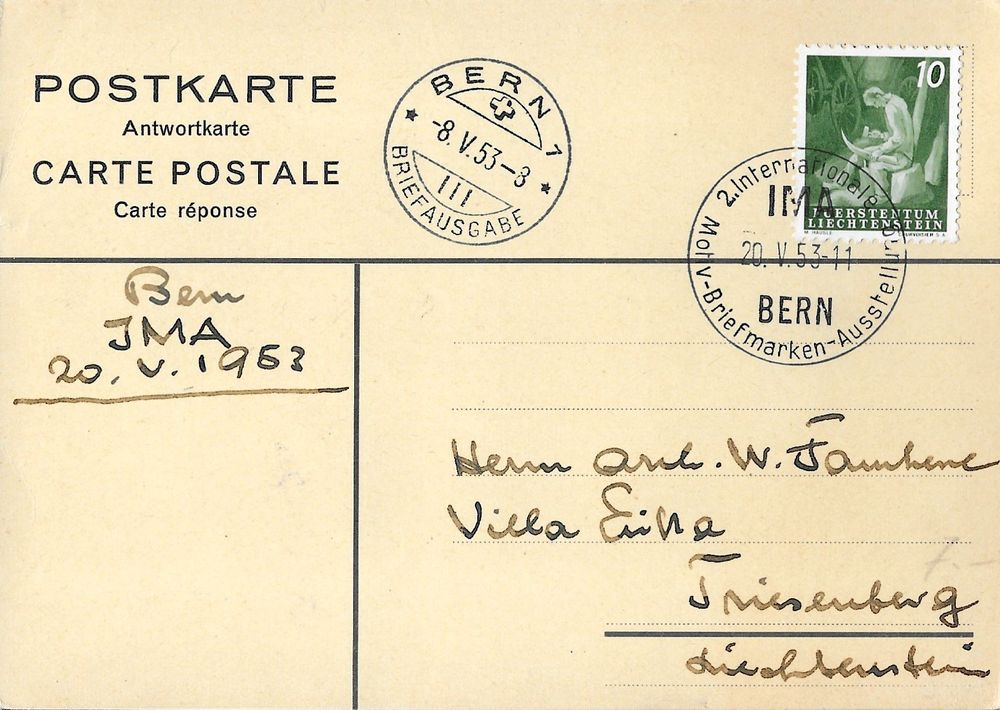 POSTKARTE
Antwortkarte
CARTE POSTALE
Carte réponse
BERN 1
-8.V.53-8
III
BRIEFAUSGABE
10
FÜERSTENTUM
LIECHTENSTEIN
2. Internationale
IMA
20. V. 53-11
BERN
Motiv-Briefmarken-Ausstellung
Bern
IMA
20. V. 1953
Herrn arch. W.
Villa
Triesenberg
Liechtenstein